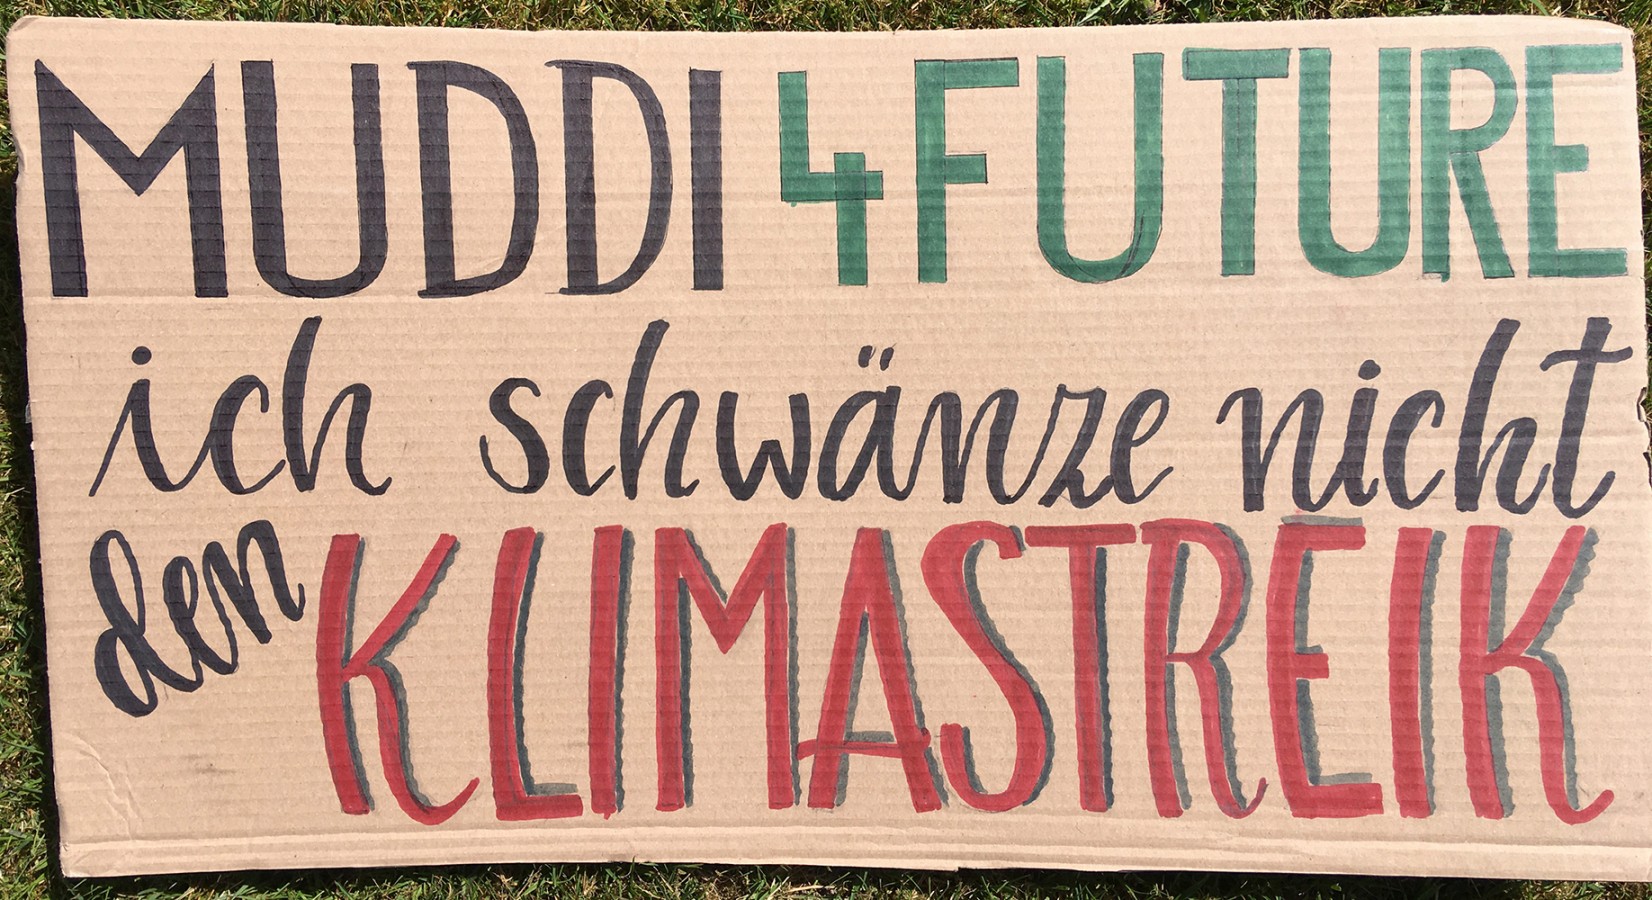 MUDDI 4FUTURE
ich schwänze nicht
den KLIMASTREIK